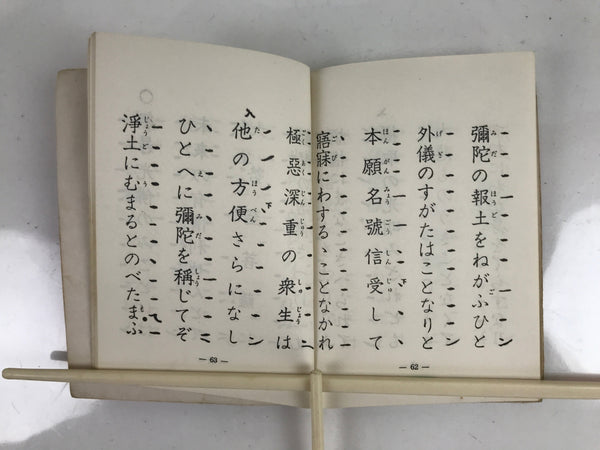 彌陀の報土をねがふひと
外儀のすがたはことなりと
本願名號信受して
寤寐にわするゝことなかれ
— 62 —
極惡深重の衆生は
他の方便さらになし
ひとへに彌陀を稱じてぞ
淨土にむまるとのべたまふ
— 63 —